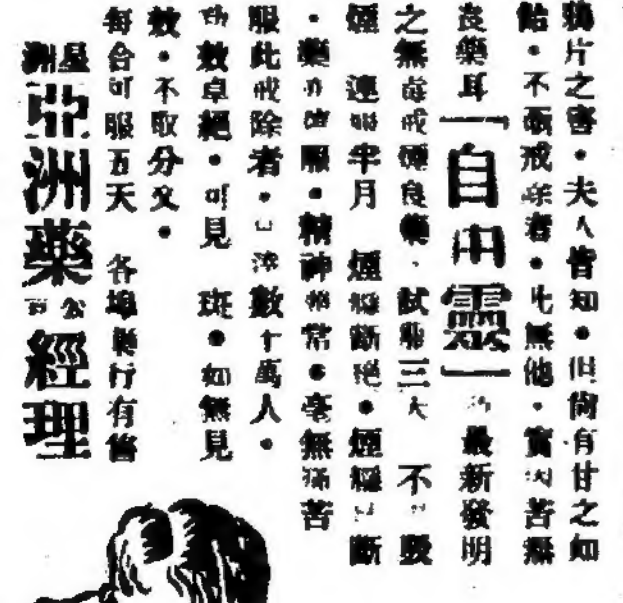 鴉片之害・夫人皆知・但尙有甘之如
飴・不願戒除者・此無他・實因苦無
良藥耳「自由靈」乃最新發明
之無毒戒煙良藥・試服三天 不 服
煙 連服半月 煙癮斷絕・煙癮 斷
・藥亦 服・精神如常・毫無痛苦
服此戒除者・ 數十萬人・
功效卓絕・可見 斑・如無見
效・不取分文・
每合可服五天 各埠藥行有售
星洲亞洲藥公司經理